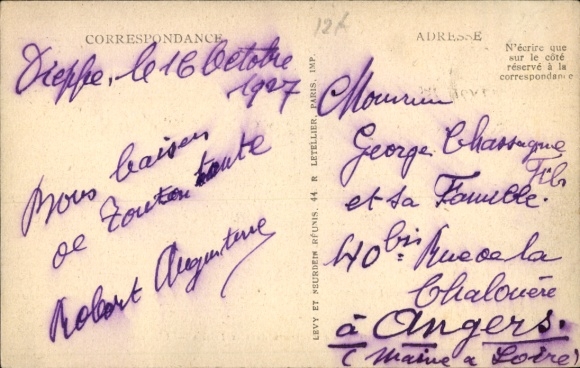 12f
CORRESPONDANCE
Dieppe, le 16 Octobre
1927
Bons baisers
de Tonton tante
Robert Augustine
LEVY ET NEURDEIN RÉUNIS, 44 R LETELLIER, PARIS. IMP.
ADRESSE
N'écrire que
sur le côté
réservé à la
correspondance
Monsieur
George Chassagne
Fils
et sa Famille.
40 bis Rue de la
Chalouère
à Angers.
(Maine a Loire)